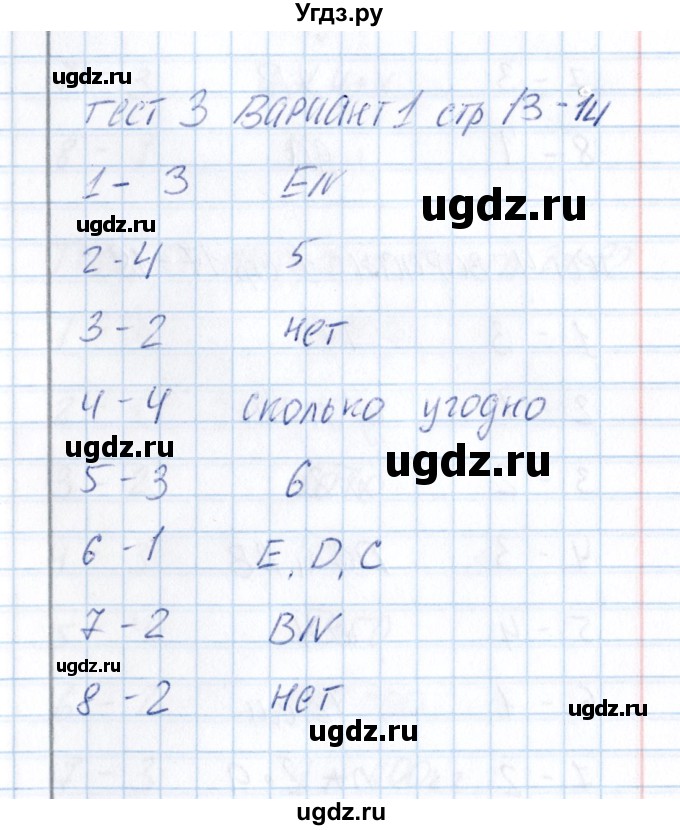 Угдз.ру
ugdz.ru
тест 3 Вариант 1 стр 13-14
1 - 3 EN
ugdz.ru
ugdz.ru
2 - 4 5
3 - 2 нет
4 - 4 сколько угодно
ugdz.ru
ugdz.ru
5 - 3 6
6 - 1 E, D, C
7 - 2 BN
ugdz.ru
8 - 2 нет
ugdz.ru
ugdz.ru
ugdz.ru